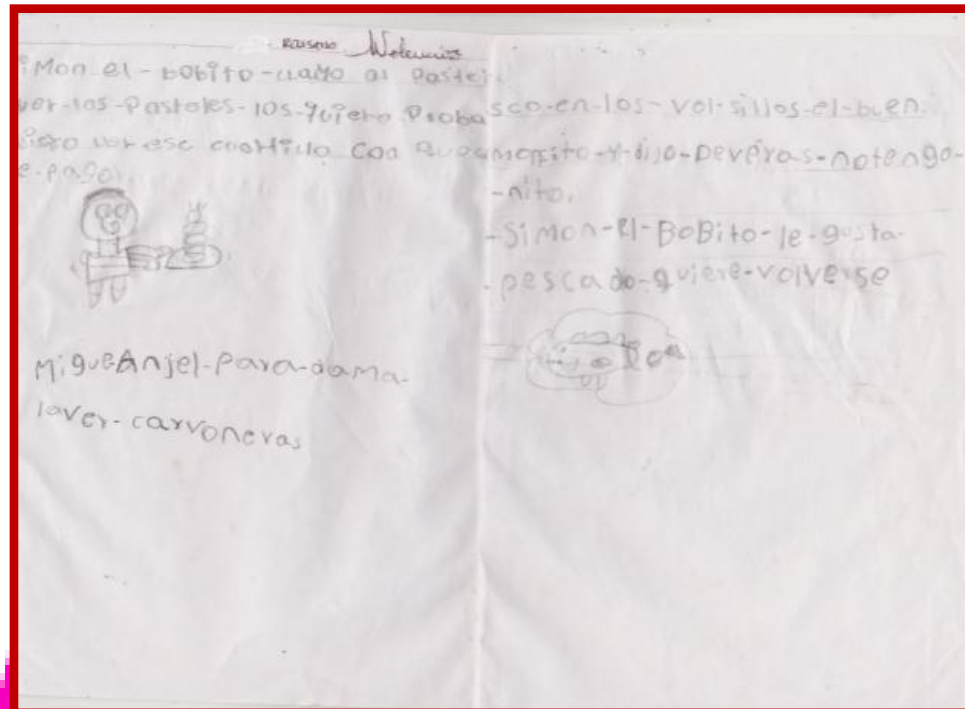 iMon-el-bobito-llamo al Pastel
ver-los-Pasteles-los-quiero Proba
ver ese cuartillo con que
e-pago.
Migue Anjel-Para-da ma-
laver-carvoneras
sco-en-los-vol-sillos-el-buen
monito-y-dijo-Deveras-notengo-
-nito.
-Simon-el-BoBito-le-gusta-
pescado-quiere-volverse